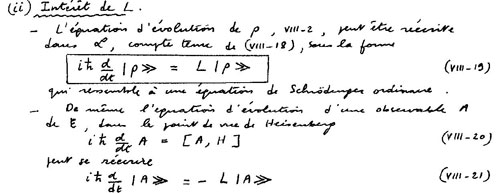 (ii) Intérêt de L.
- L'équation d'évolution de ρ, VIII-2, peut être récrite
dans ℒ, compte tenu de (VIII-18), sous la forme
iħ d/dt |ρ≫ = L |ρ≫ (VIII-19)
qui ressemble à une équation de Schrödinger ordinaire.
- De même l'équation d'évolution d'une observable A
de E, dans le point de vue de Heisenberg
iħ d/dt A = [A, H] (VIII-20)
peut se récrire
iħ d/dt |A≫ = - L |A≫ (VIII-21)